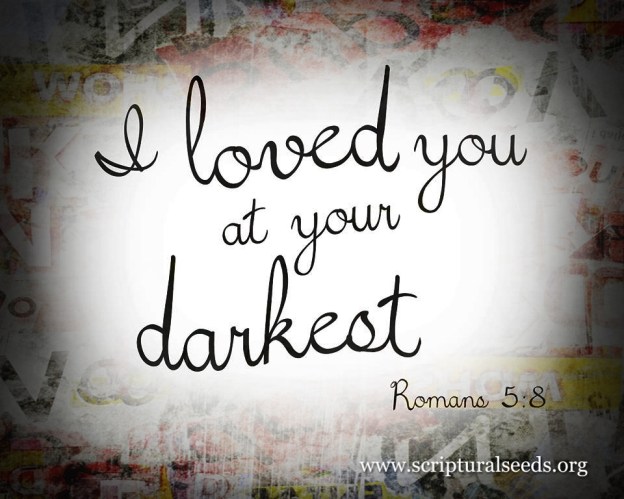 I loved you
at your
darkest
Romans 5:8
www.scripturalseeds.org